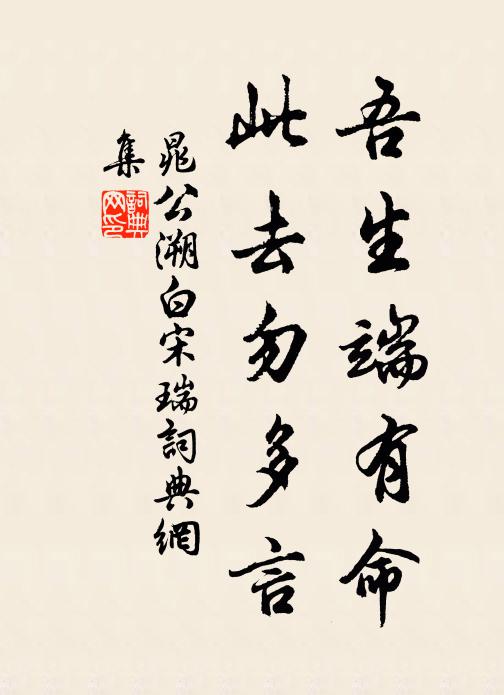 吾生端有命
此去勿多言
晁公溯白宋瑞詞典網
集
詞典網印